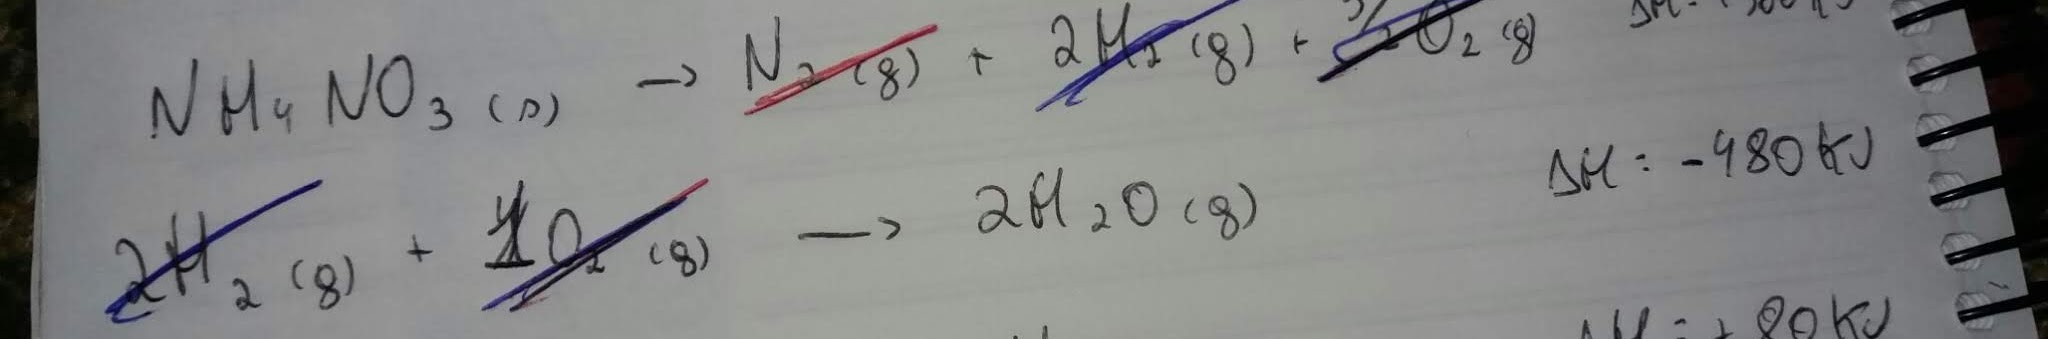 NH4NO3(s) → N2(g) + 2H2(g) + 3/2O2(g)
2H2(g) + 1O2(g) → 2H2O(g) ΔH = -480KJ
ΔH = +80KJ